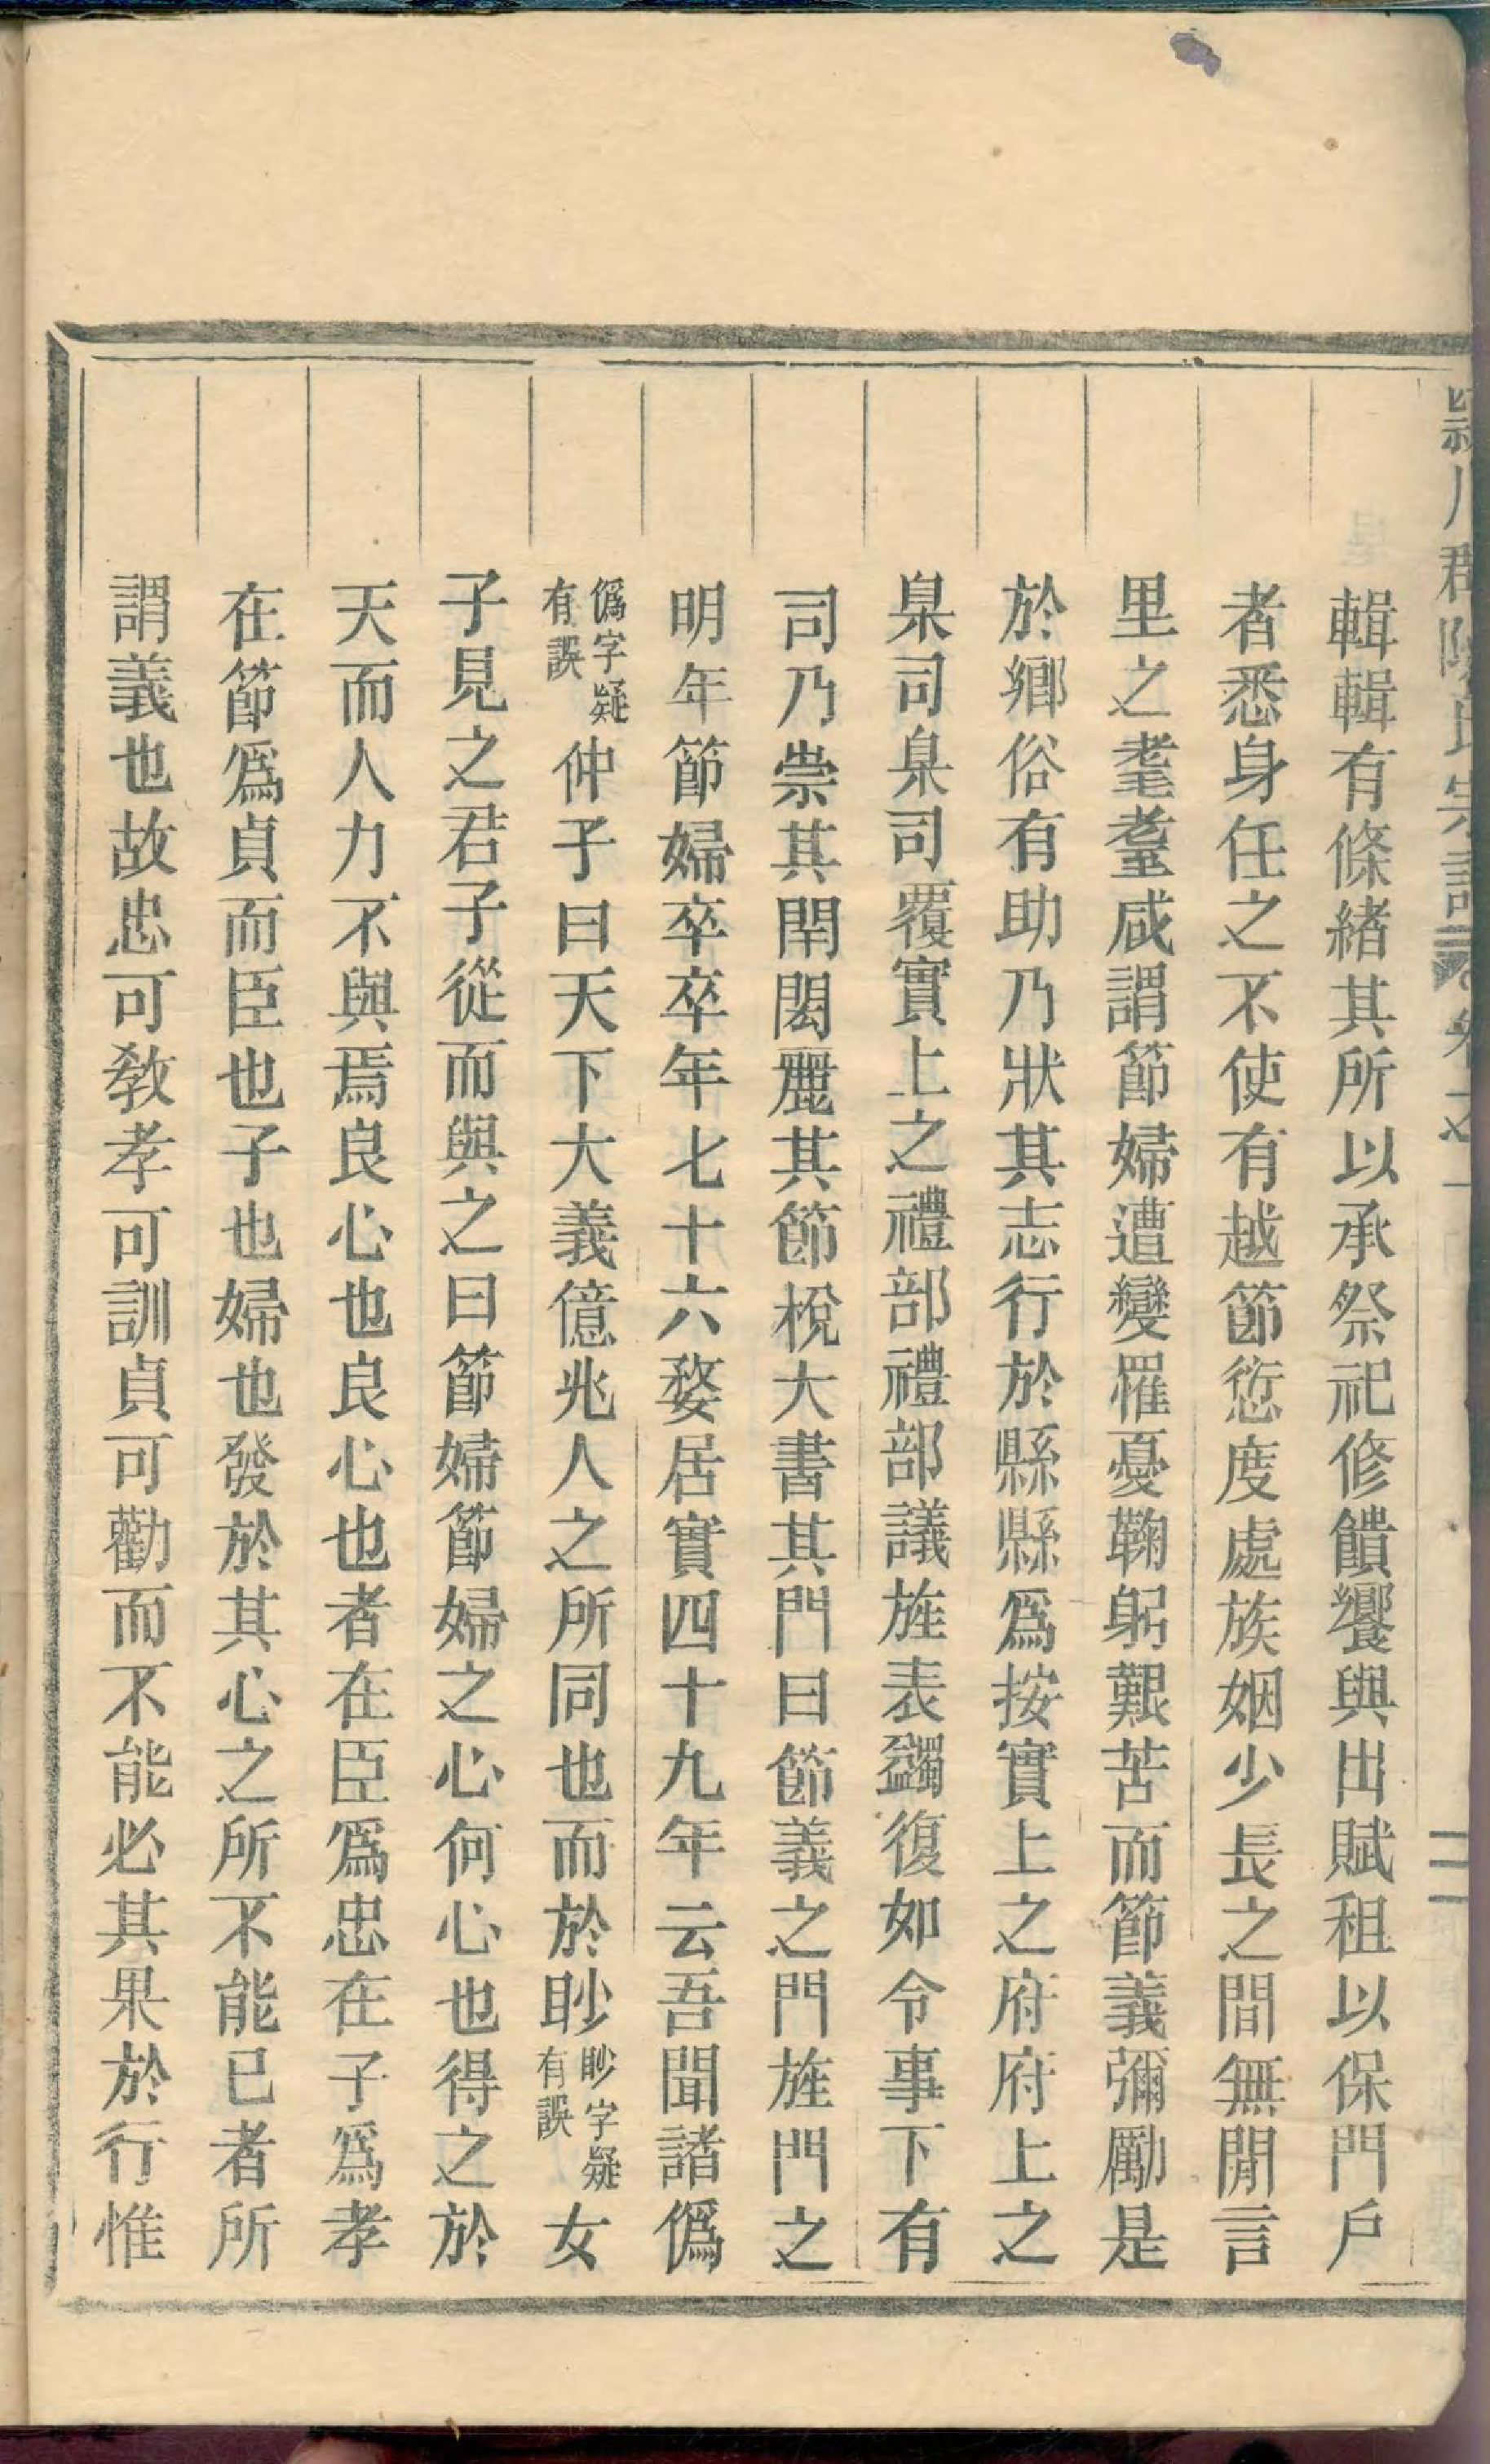 潁川郡陳氏宗譜 卷之一 二
輯輯有條緒其所以承祭祀修饋饗與出賦租以保門戶
者悉身任之不使有越節愆度處族姻少長之間無閒言
里之耄耋咸謂節婦遭變罹憂鞠躬艱苦而節義彌勵是
於鄉俗有助乃狀其志行於縣縣爲按實上之府府上之
臬司臬司覆實上之禮部禮部議旌表蠲復如令事下有
司乃崇其閈閎麗其節梲大書其門曰節義之門旌門之
明年節婦卒卒年七十六嫠居實四十九年云吾聞諸僞
僞字疑有誤仲子曰天下大義億兆人之所同也而於眇眇字疑有誤女
子見之君子從而與之曰節婦節婦之心何心也得之於
天而人力不與焉良心也良心也者在臣爲忠在子爲孝
在節爲貞而臣也子也婦也發於其心之所不能已者所
謂義也故忠可敎孝可訓貞可勸而不能必其果於行惟